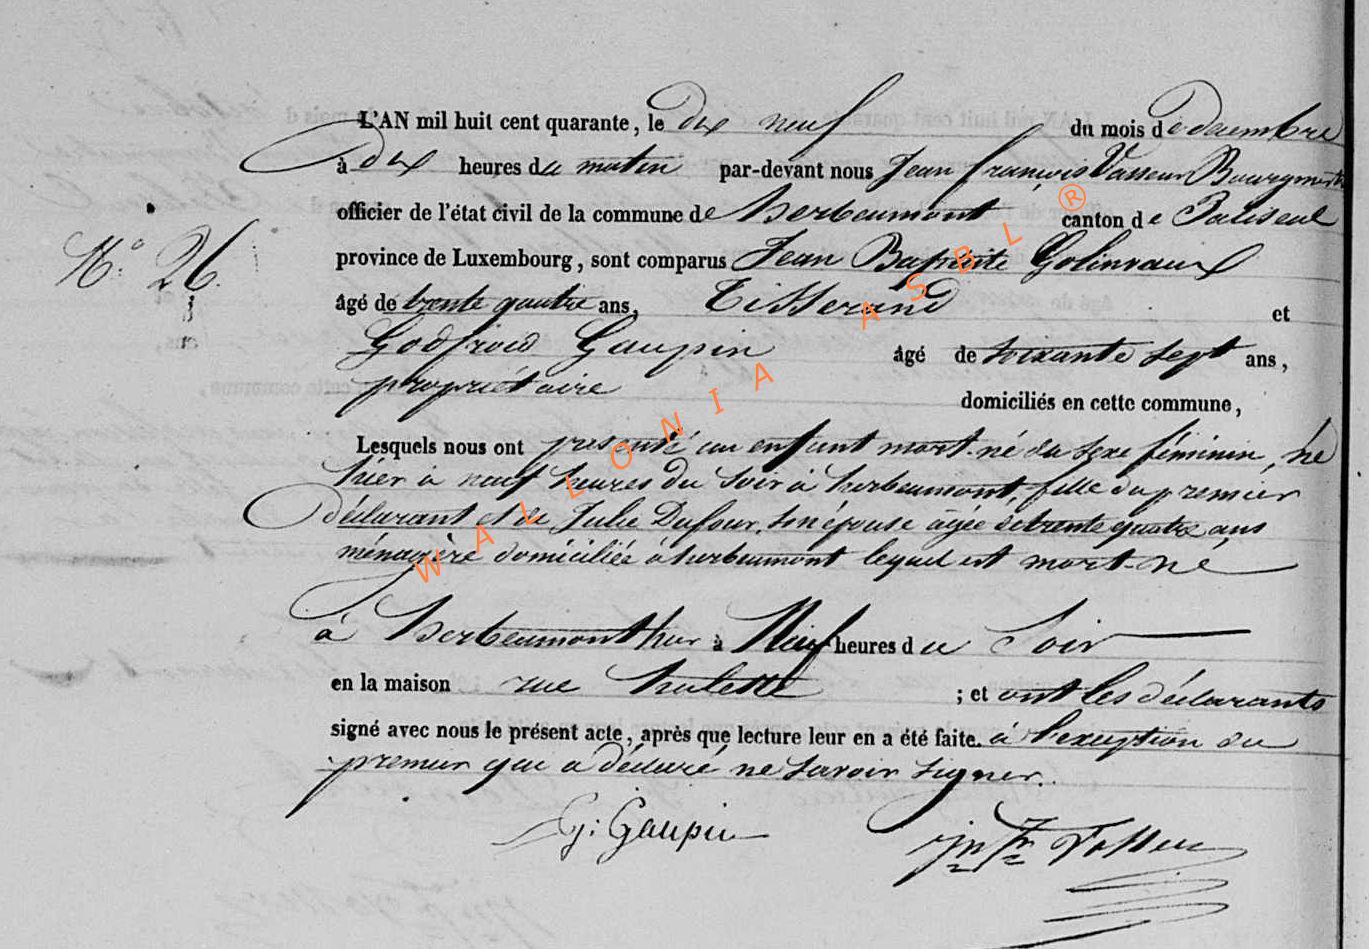 L'AN mil huit cent quarante, le dix neuf du mois de decembre
à dix heures du matin par-devant nous Jean françois Vasseur Bourgmestre
officier de l'état civil de la commune de herbeumont canton de Paliseul
N° 26.
province de Luxembourg, sont comparus Jean Baptiste Golinvaux
âgé de trente quatre ans, Tisserand et
Godfroid Gaupin âgé de soixante sept ans,
propriétaire domiciliés en cette commune,
Lesquels nous ont presenté un enfant mort-né du sexe féminin, né
hier à neuf heures du soir à herbeumont, fille du premier
déclarant et de Julie Dufour, son épouse âgée de trente quatre ans
ménagère domiciliée à herbeumont lequel est mort-né
à herbeumont hier à Neuf heures du Soir
en la maison rue ; et ont les déclarants
signé avec nous le présent acte, après que lecture leur en a été faite. à l'exception du
premier qui a déclaré ne savoir signer.
G: Gaupin
Jn Fr Vasseur
WALLONIA ASBL ®